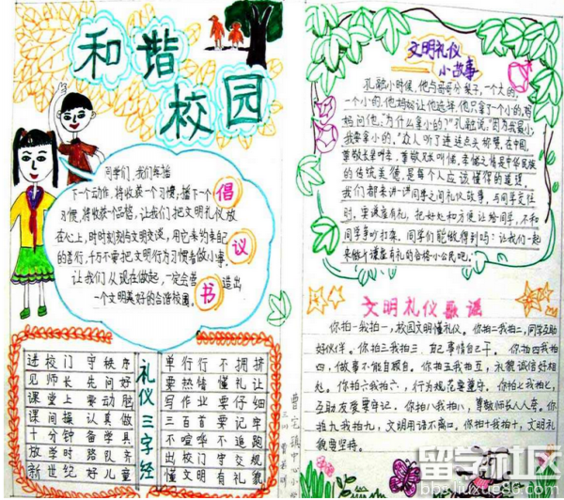 和谐
校园
同学们，我们每播
下一个动作，将收获一个习惯；播下一个
习惯，将收获一个品格，让我们把文明礼仪放
在心上，时时刻刻与文明交谈，用它来约束自己
的言行，千万不要把文明行为习惯看做小事。
让我们从现在做起，一定会营造出
一个文明美好的合谐校园。
倡
议
书
礼仪三字经
进校门 守秩序
见师长 先问好
课堂上 要动脑
课间操 认真做
十分钟 备学具
放学时 路队齐
新世纪 好儿童
单行行 不拥挤
要热情 懂礼让
写作业 要仔细
三百首 要记牢
不喧呼 不追跑
出校门 守交规
懂文明 有礼貌
文明礼仪
小故事
孔融小时候，他与哥哥分梨子，一个大的，
一个小的，他妈妈让他选择，他只拿了一个小的，妈
妈问他：为什么拿小的？"孔融说："因为我最小，
我要拿小的。"众人听了连连点头称赞，在中国，
的传统美德，是每个人应该懂得的道理。
我们都来讲一讲同学之间礼仪故事，与同学交往
时，要谦虚有礼，把好处和方便让给同学，不和
同学争吵打架。同学们能做得到吗？让我们一起
来做个谦虚有礼的合格小公民吧。
文明礼仪歌谣
你拍一我拍一，校园文明懂礼仪。你拍二我拍二，同学互助
好伙伴。你拍三我拍三，自己事情自己干。你拍四我拍
四，做事不能自顾自。你拍五我拍五，礼貌诚信好相
处。你拍六我拍六，行为规范要遵守。你拍七我拍七，
互助友爱要牢记。你拍八我拍八，尊敬师长人人夸。你拍
九我拍九，文明用语不离口。你拍十我拍十，文明礼
貌要坚持。
留学社区
bbs.liuxue86.com